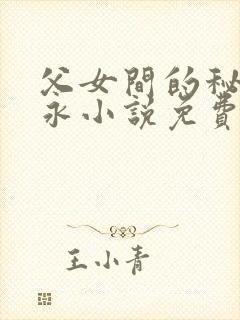 父女間的秘
永小説免費
王小青